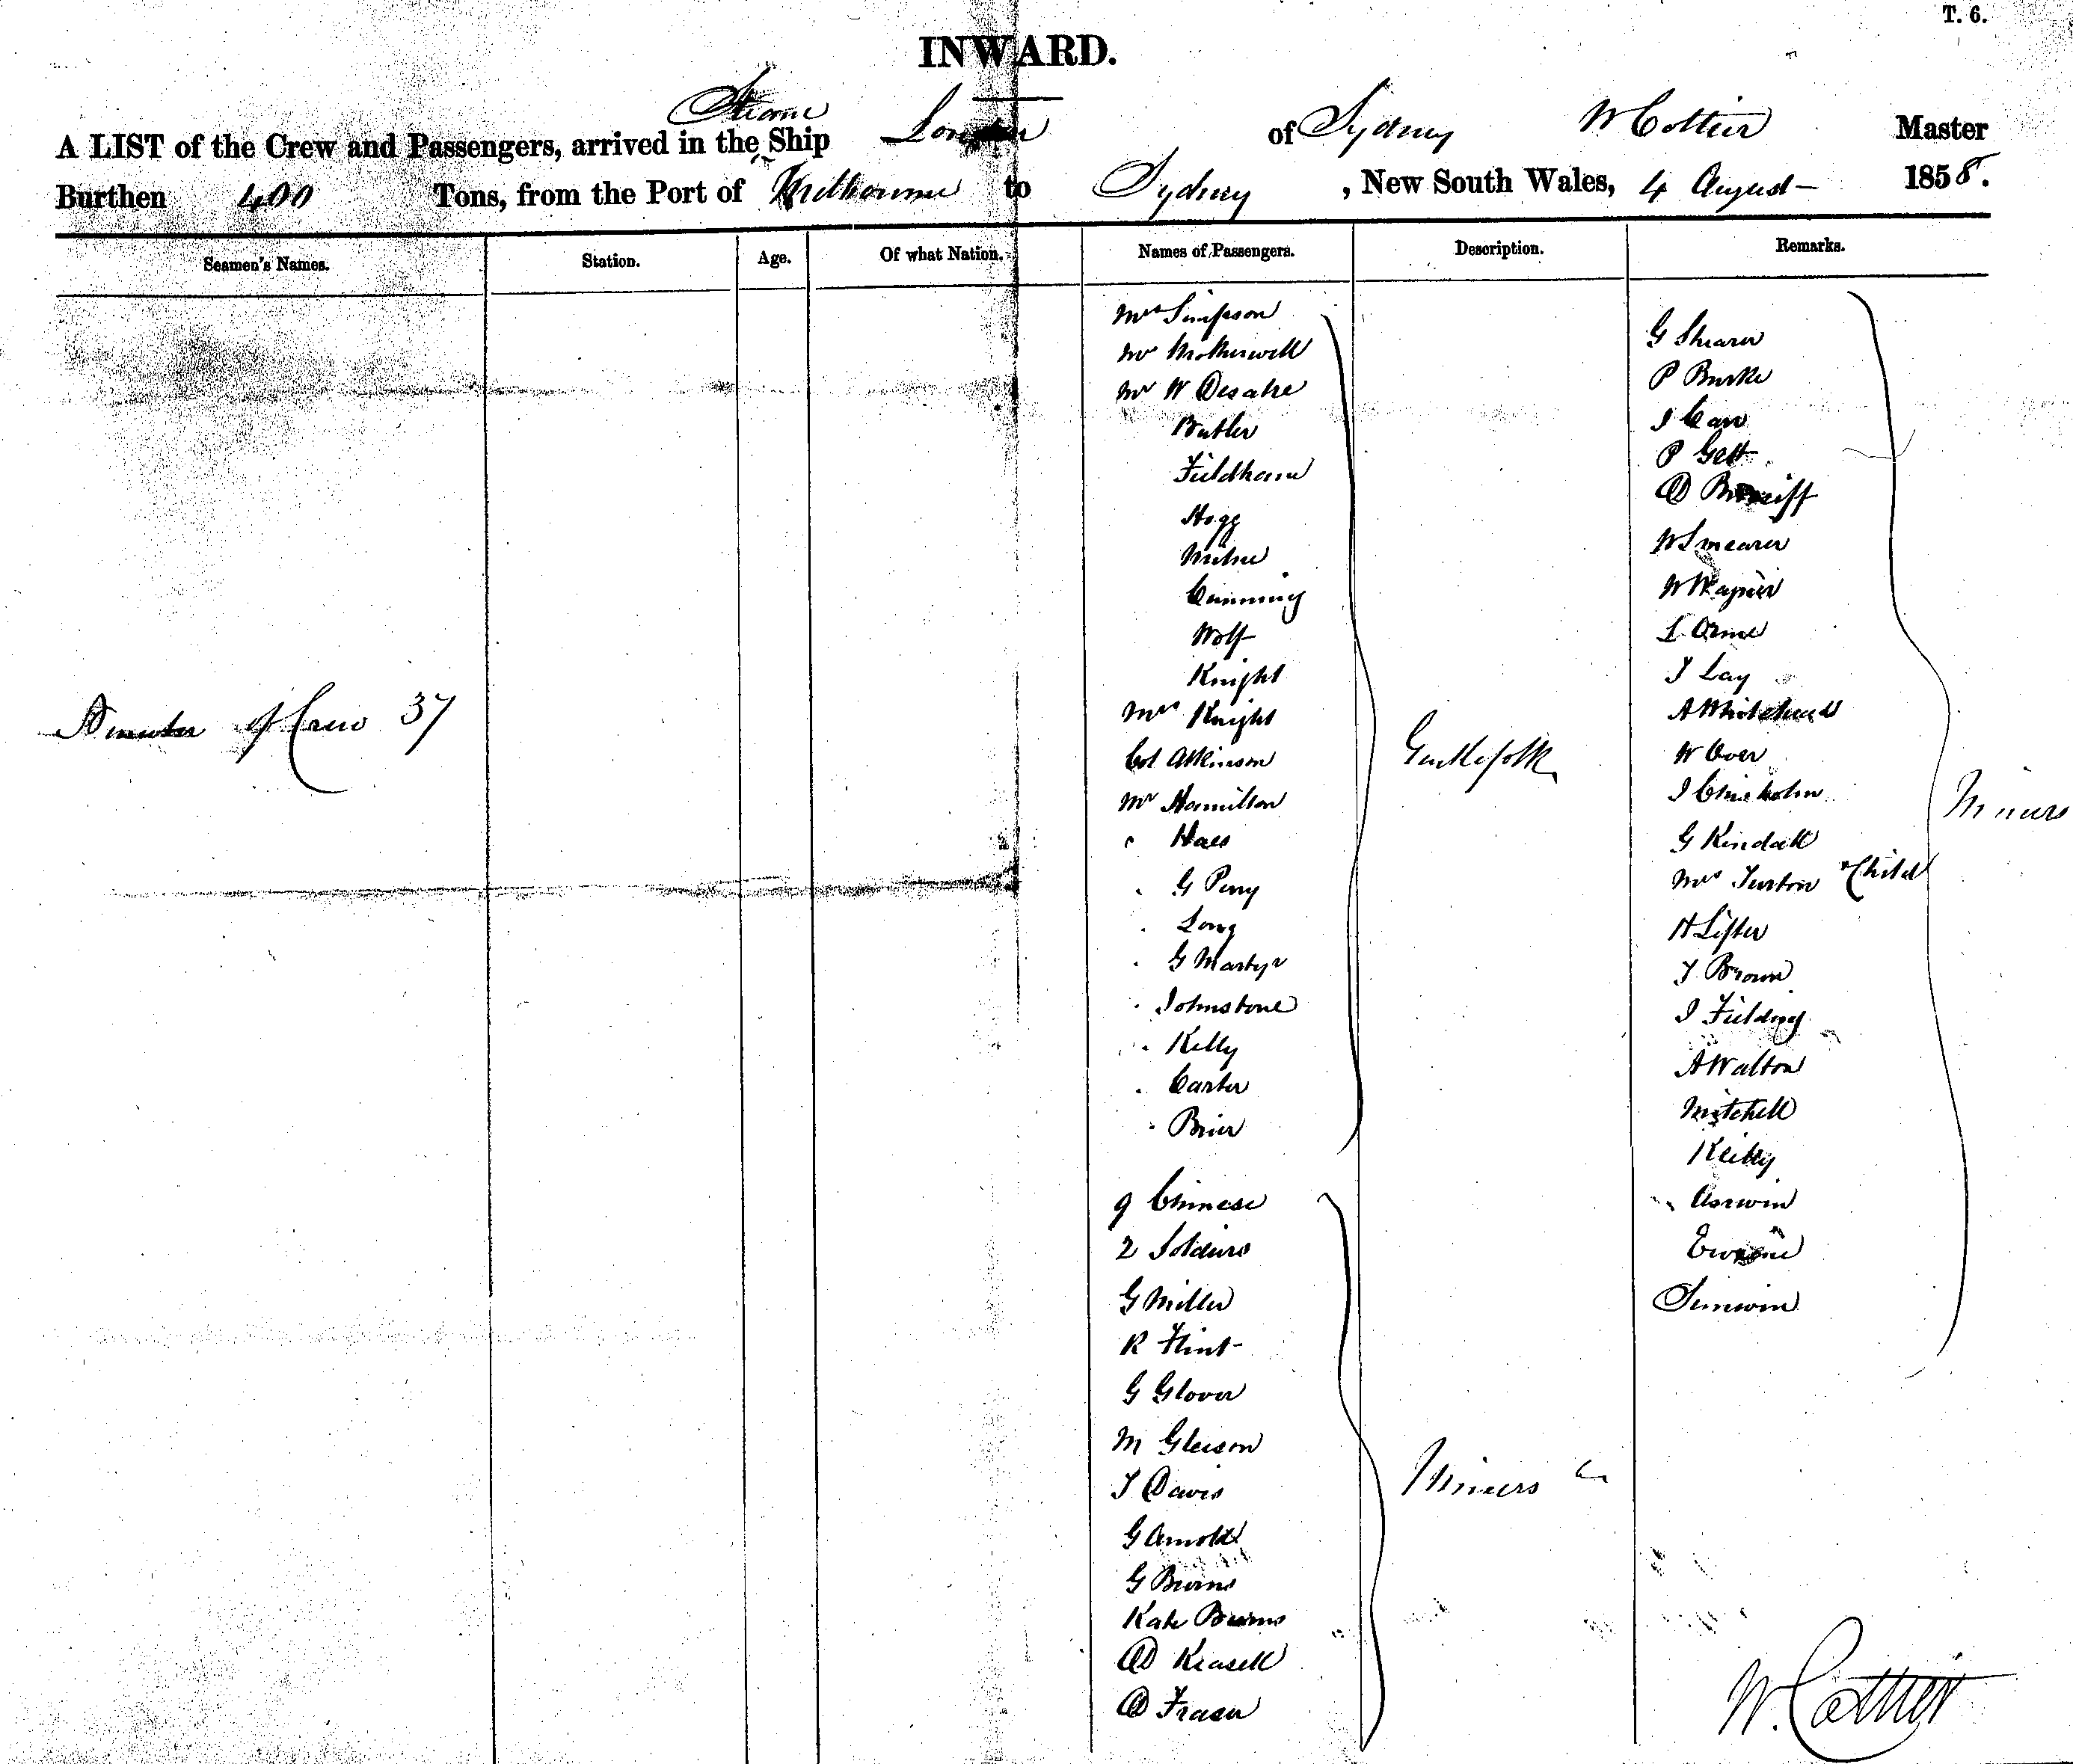 T. 6.
INWARD.
Steame
A LIST of the Crew and Passengers, arrived in the Ship London of Sydney W Cottier Master
Burthen 400 Tons, from the Port of Melbourne to Sydney, New South Wales, 4 August 1858.
Seamen's Names. Station. Age. Of what Nation. Names of Passengers. Description. Remarks.
Mrs Simpson
Mr Motherwell
Mr W
Butler
Fieldham
Hogg
Milne
Cumming
Wolf
Knight
Mrs Knight
Col Atkinson
Mr Hamilton
" Haes
" G Perry
" Long
" G Martyr
" Johnstone
" Kelly
" Carter
" Brier
Gentlefolk
Number of Crew 37
9 Chinese
2 Soldiers
G Miller
R Flint
G Glover
M Gleeson
J Davis
G Arnold
G Burns
Kate Burns
D
D Fraser
Miners &c
G Shearer
P Burke
J Carr
P Gett
D
W Smearer
W Napier
L Orme
J Lay
A Whitehead
W Over
J Chisholm
G Kendall
Mrs Turton & Child
H Lifter
J Brown
J Fielding
A Walton
Mitchell
Reilly
Miners
W. Cottier